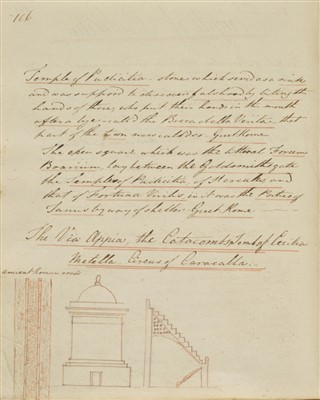 166
Temple of Pudicitia - stone which served as a
and was supposed to discover falshood by biting the
hands of those, who put their hands in the mouth
after a lye - called the Bocca della Verita - that
part of the town was called so - Quel Rome.
The open square which was the littoral Forum
Boarium, lay between the Goldsmiths gate
the Temple of Pudicitia, of Hercules and
that of Fortuna Virilis, in it was the
Janus by way of shelter. Quel Rome
The Via Appia the Catacombs Tomb of Cecilia
Metella. Circus of Caracalla. -
ancient house